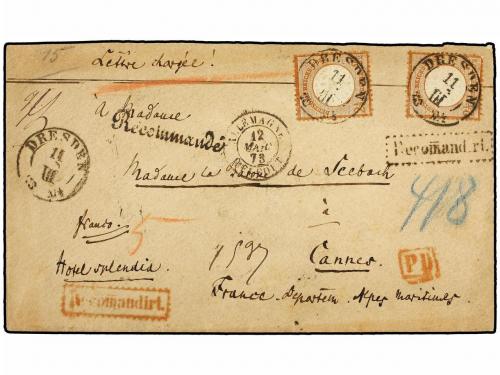 15
Lettre chargée!
DRESDEN
11
III
DRESDEN
11
III
à Madame
Recommandé
ALLEMAGNE
12
MARS
73
Recomandirt.
DRESDEN
11
III
Madame la de Seebach
418
à
franco!
5
Cannes
PD
Hotel splendid
France. Departem. Alpes maritimes
Recomandirt.